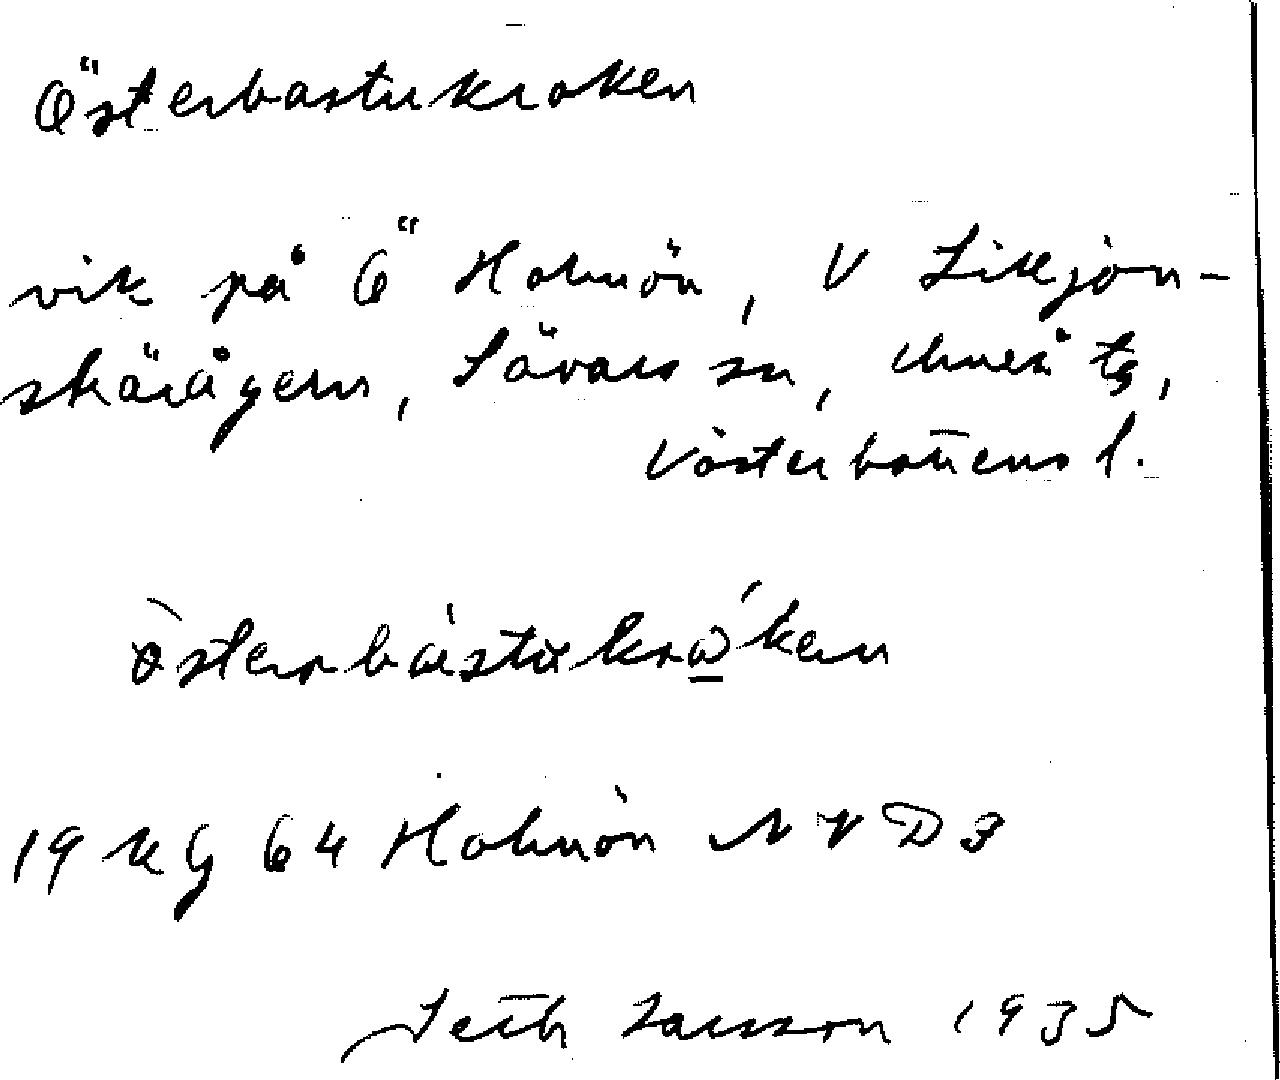 Österbastukroken
vik på Ö Holmön, V Lilljon-
skärågern, Sävars sn, Umeå tg,
Västerbottens l.
österbastukroken
19 KG 64 Holmön NV D3
Seth Larsson 1935